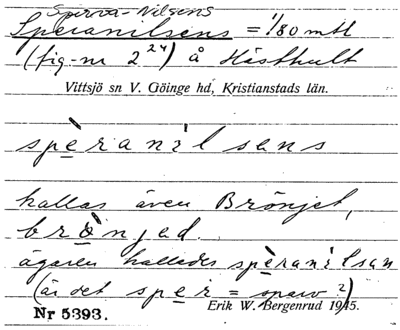 Sparva-Nilsens
Speranilsens = 1/80 mtl
(fig-nr 2²⁴) å Hästhult
Vittsjö sn V. Göinge hd, Kristianstads län.
spèranìlsens
kallas även Brönjet,
brönjed.
ägaren kallades spèranìlsan
(är det sper = sparv ?)
Erik W. Bergenrud 1945.
Nr 5393.